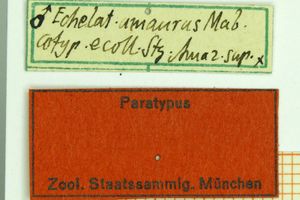 ♂ Echelat. umaurus Mab.
cotyp. e coll. Stg. Amaz. sup.
Paratypus
Zool. Staatssammlg. München